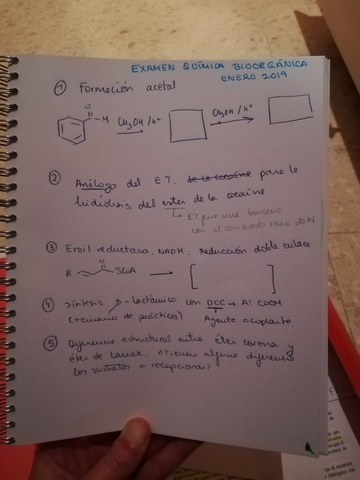 EXAMEN QUÍMICA BIOORGÁNICA
ENERO 2019
① Formación acetal
O
H
CH3OH / H+
CH3OH / H+
② Análogo del E.T. de la cocaína para la
hidrólisis del ester de la cocaína
③ Enoil reductasa, NADH, Reducción doble enlace
R
O
SCoA
④ Síntesis β-lactámico con DCC → A' COOH
(+ temario de prácticas)
Agente acoplante
⑤ Diferencia estructural entre éter corona y
éter de lariat. (Tienen alguna diferencia
los sustratos a recepcionar)